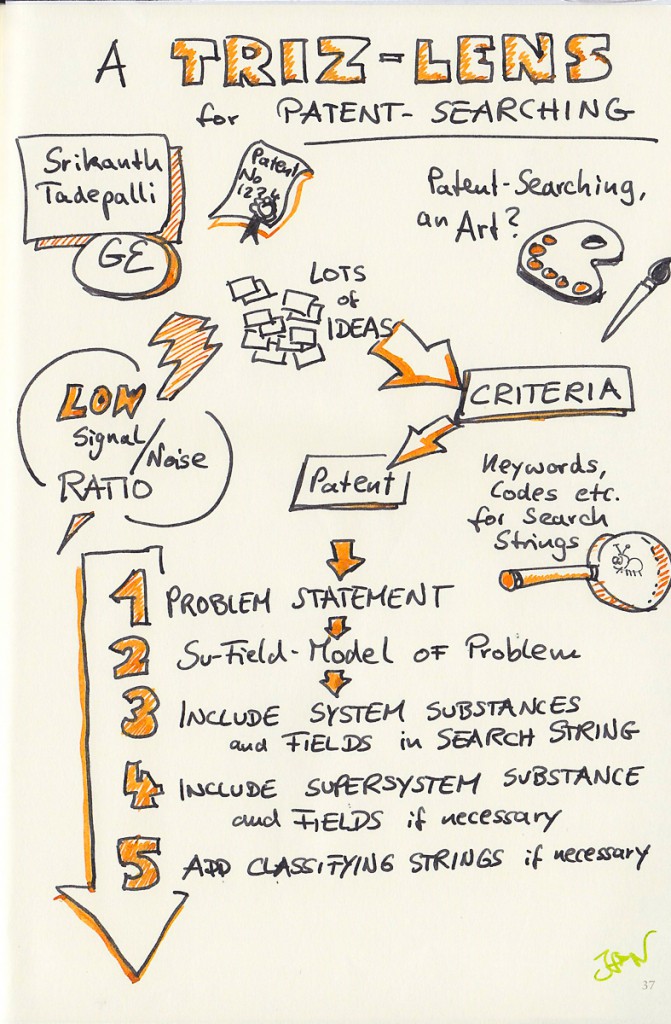 A TRIZ-LENS
for PATENT-SEARCHING
Srikanth
Tadepalli
GE
Patent
No
1234
Patent-Searching,
an Art?
LOTS
of
IDEAS
CRITERIA
LOW
Signal/
Noise
RATIO
Patent
Keywords,
Codes etc.
for Search
Strings
1 PROBLEM STATEMENT
2 Su-Field-Model of Problem
3 INCLUDE SYSTEM SUBSTANCES
and FIELDS in SEARCH STRING
4 INCLUDE SUPERSYSTEM SUBSTANCE
and FIELDS if necessary
5 ADD CLASSIFYING STRINGS if necessary
37